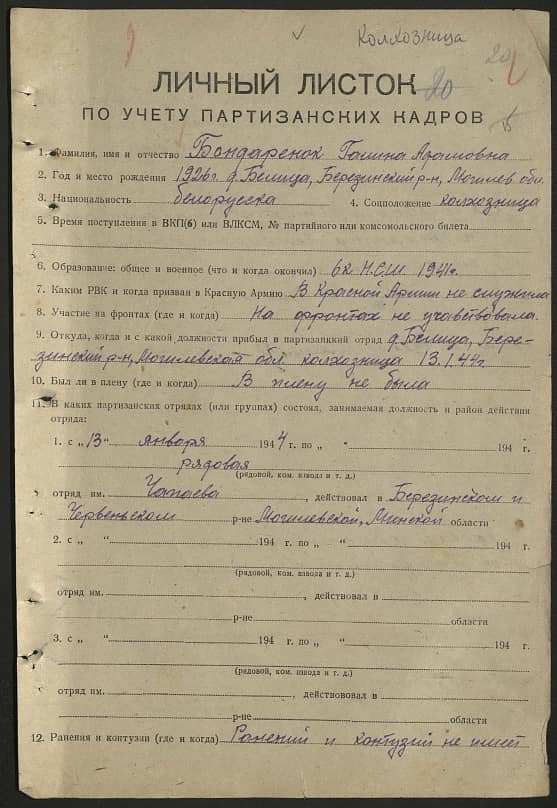 Колхозница
20
ЛИЧНЫЙ ЛИСТОК 20
ПО УЧЕТУ ПАРТИЗАНСКИХ КАДРОВ
1. Фамилия, имя и отчество Бондаренок Галина Адамовна
2. Год и место рождения 1926г. д. Белица, Березинский р-н, Могилев. обл.
3. Национальность белорусска 4. Соцположение колхозница
5. Время поступления в ВКП(б) или ВЛКСМ, № партийного или комсомольского билета
6. Образование: общее и военное (что и когда окончил) 6 кл Н.С.Ш. 1941г.
7. Каким РВК и когда призван в Красную Армию В Красной Армии не служила
8. Участие на фронтах (где и когда) На фронтах не учавствовала.
9. Откуда, когда и с какой должности прибыл в партизанкий отряд д. Белица, Бере-
зинский р-н, Могилевской обл. колхозница 13.1.44г.
10. Был ли в плену (где и когда) В плену не была
11. В каких партизанских отрядах (или группах) состоял, занимаемая должность и район действия
отряда:
1. с „ 13 “ января 194 4 г. по „ “ 194 г.
рядовая
(рядовой, ком. взвода и т. д.)
отряд им. Чапаева , действовал в Березинском и
Червеньском р-не Могилевской, Минской области
2. с „ “ 194 г. по „ “ 194 г.
(рядовой, ком. взвода и т. д.)
отряд им. , действовал в
р-не области
3. с „ “ 194 г. по „ “ 194 г.
(рядовой, ком. взвода и т. д.)
отряд им. , действововал в
р-не области
12. Ранения и контузии (где и когда) Ранений и контузий не имеет